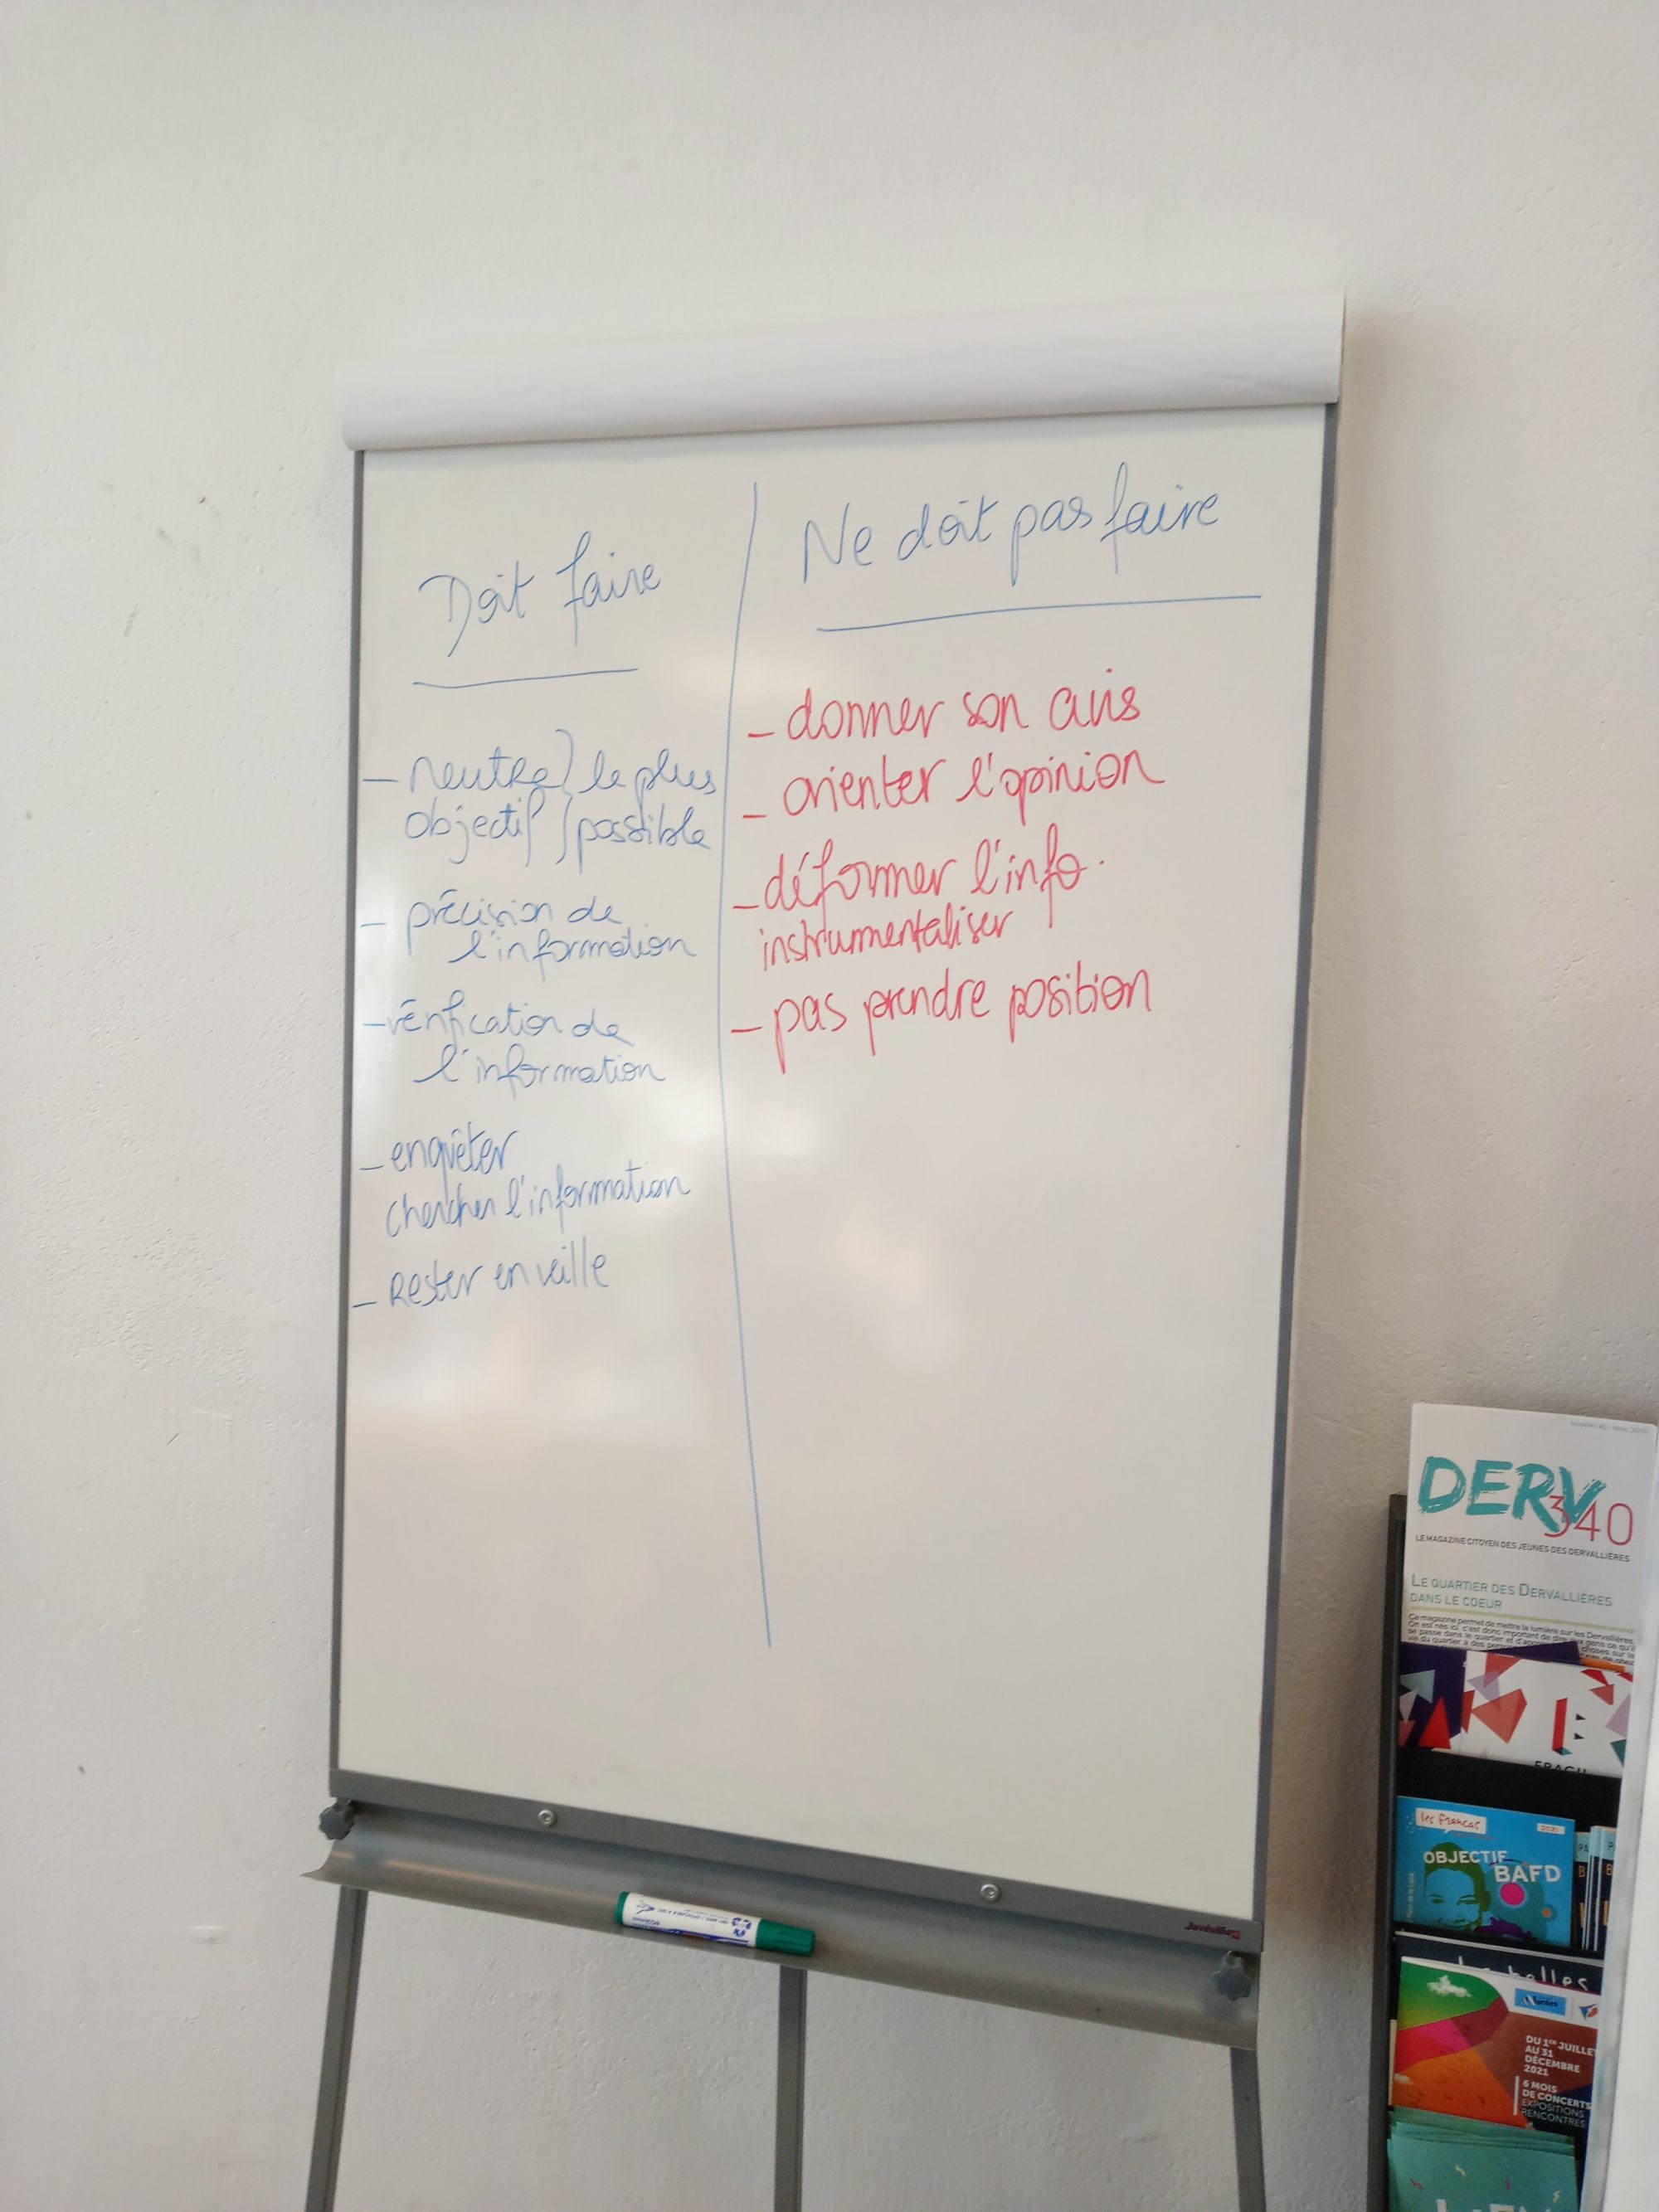 Doit faire
- neutre } le plus
objectif } possible
- précision de
l'information
- vérification de
l'information
- enquêter
chercher l'information
- Rester en veille
Ne doit pas faire
- donner son avis
- orienter l'opinion
- déformer l'info.
instrumentaliser
- pas prendre position
DERV
340
LE MAGAZINE CITOYEN DES JEUNES DES DERVALLIÈRES
LE QUARTIER DES DERVALLIÈRES
DANS LE COEUR
Ce magazine permet de mettre la lumière sur les Dervallières.
les francas
2021
OBJECTIF
BAFD
Nantes
DU 1ER JUILLET
AU 31
DÉCEMBRE
2021
6 MOIS
DE CONCERTS
EXPOSITIONS
RENCONTRES